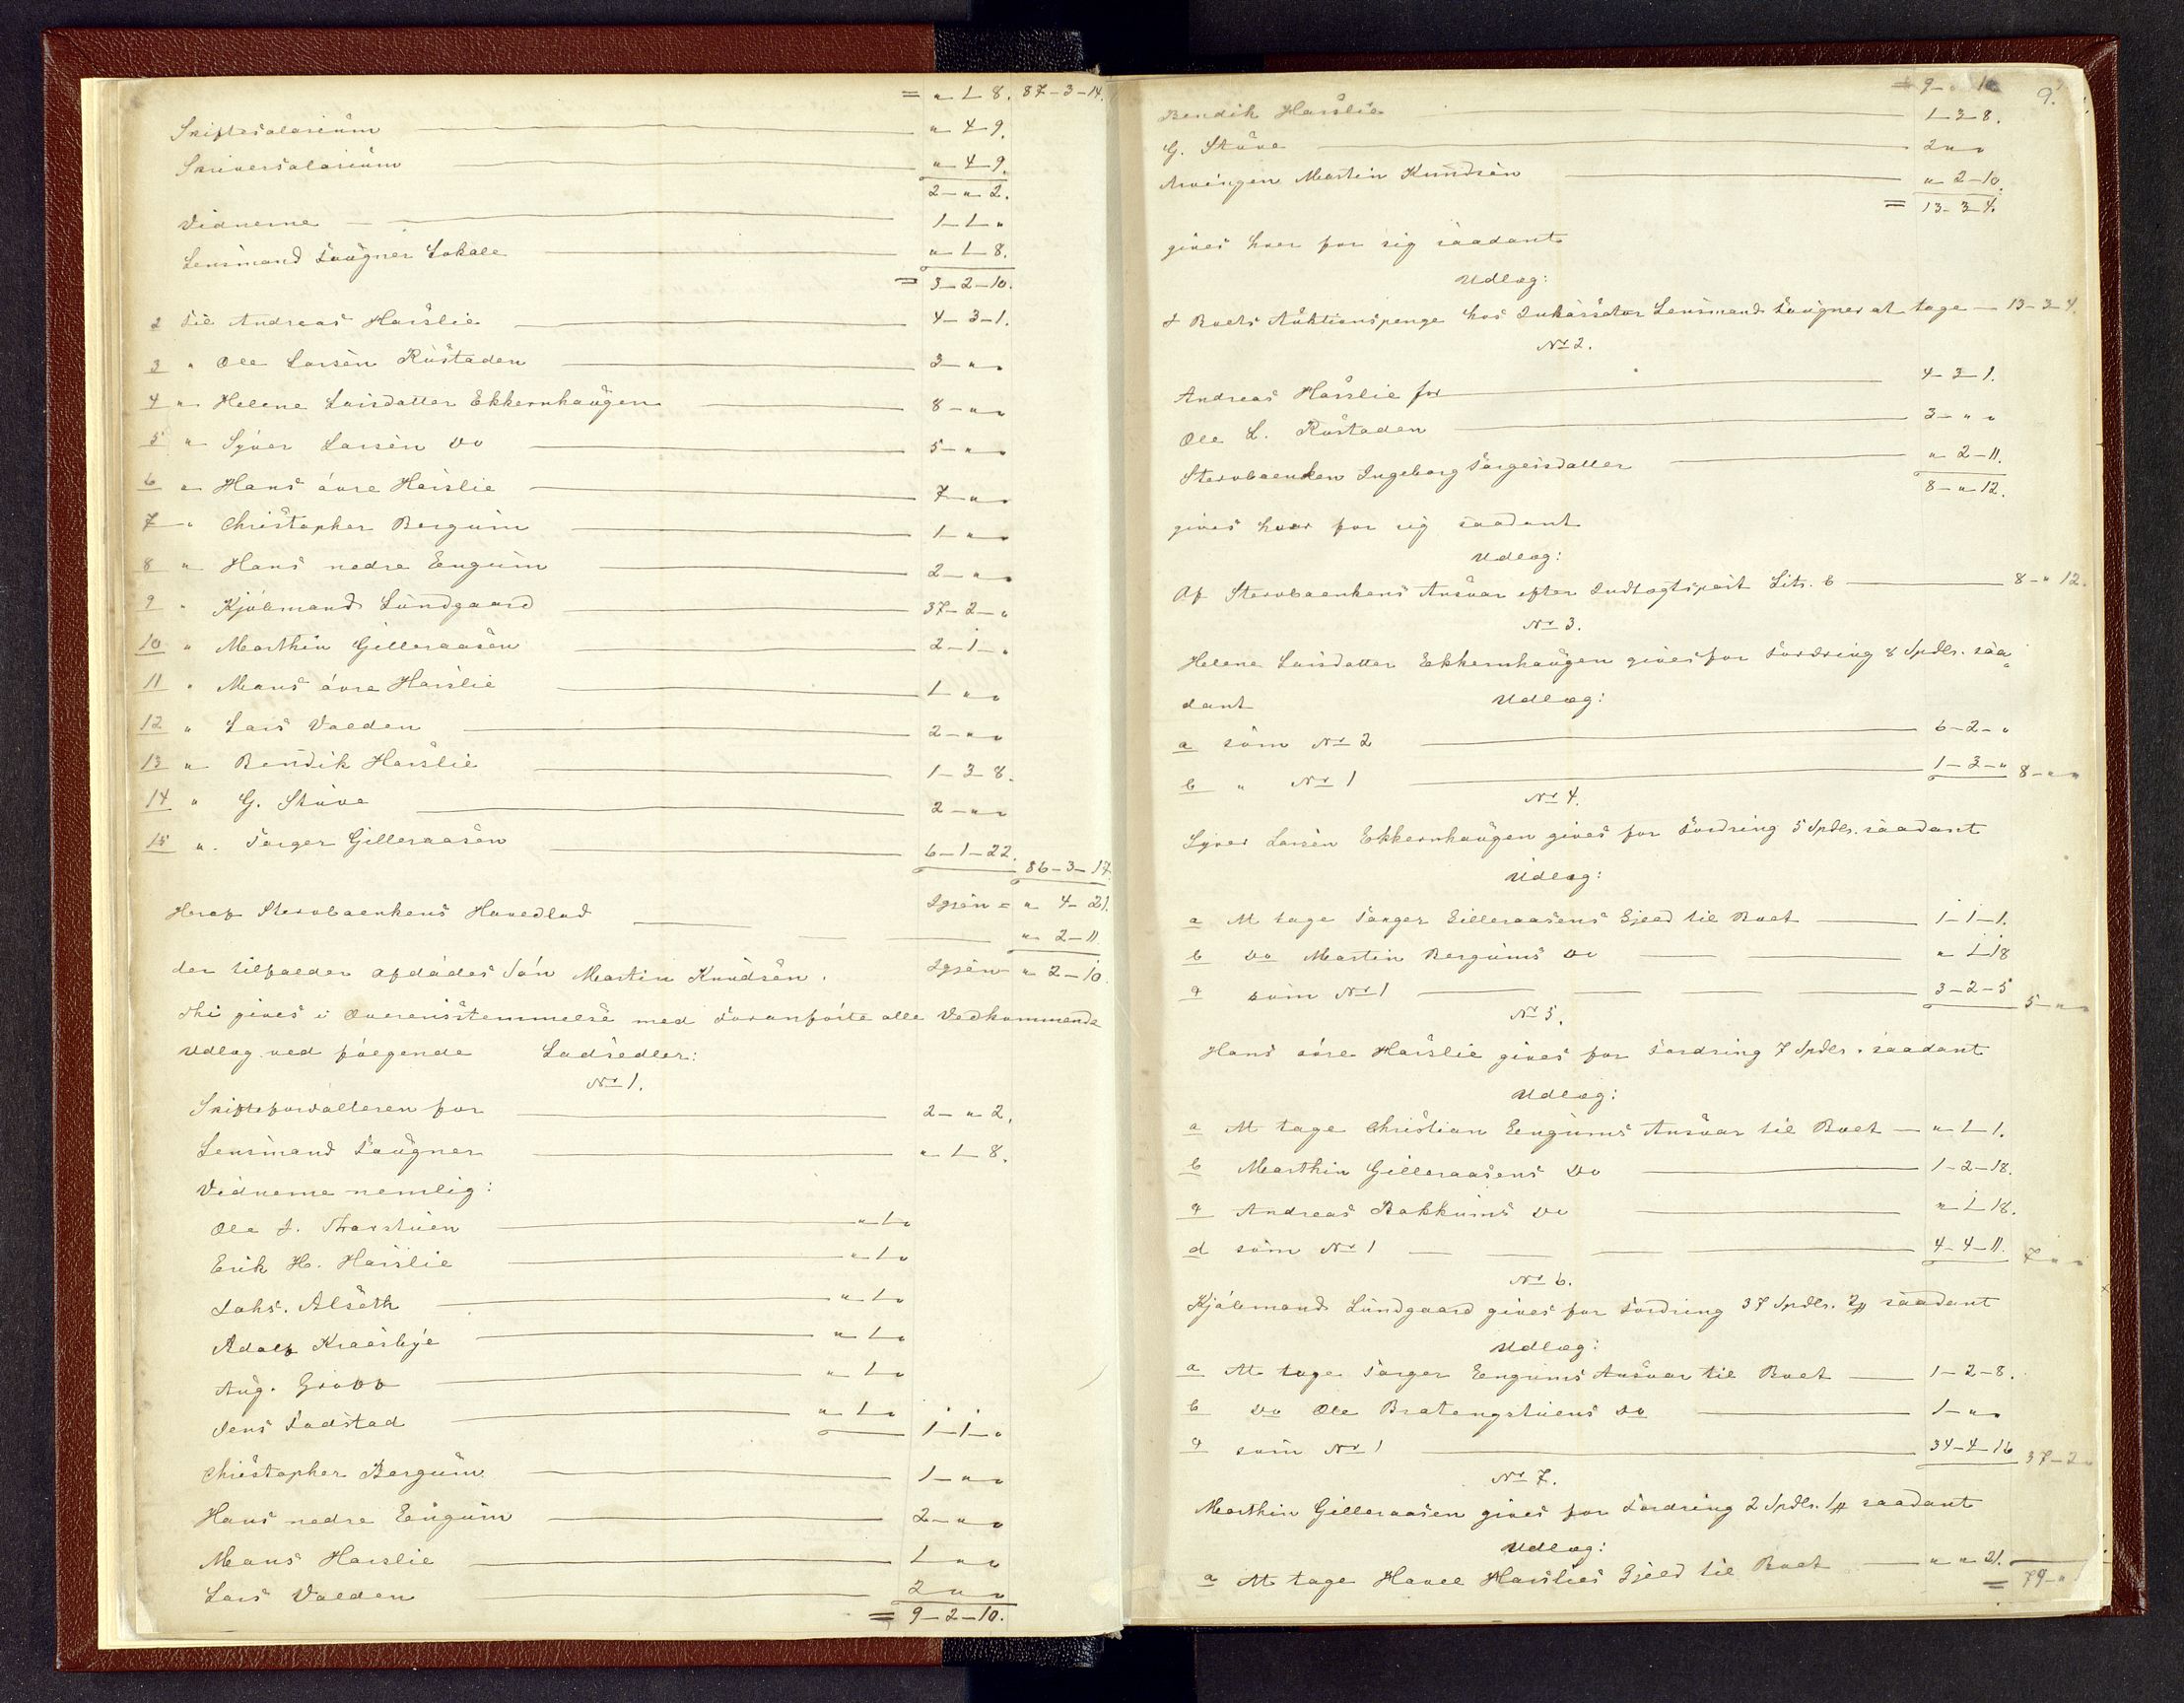 = " 1 8. 87-3-14.
Skiftesalarium " 4-9.
Skriversalarium " 4-9.
2-"-2.
Vidnerne 1-1-"
Lensmand Taugner Lokale " 1-8.
= 3-2-10.
2 Til Andreas Harslie 4-3-1.
3 " Ole Larsen Rustaden 3-"-"
4 " Helene Larsdatter Ekkernhaugen 8-"-"
5 " Syver Larsen Do 5-"-"
6 " Hans övre Harslie 7-"-"
7 " Christopher Bergum 1-"-"
8 " Hans nedre Engum 2-"-"
9 " Kjöbmand Lundgaard 37-2-"
10 " Marthin Gilleraasen 2-1-"
11 " Mans övre Harslie 1 " "
12 " Lars Volden 2-"-"
13 " Bendik Harslie 1-3-8.
14 " G. Stuve 2-"-"
15 " Torger Gilleraasen 6-1-22. 86-3-17.
Heraf Stervboenkens Hovedlod Igjen = " 4-21.
" 2-11.
der tilfalder afdödes Sön Martin Knudsen. Igjen " 2-10.
Thi gives i Overensstemmelse med Foranförte alle Vedkommende
Udlæg ved fölgende Lodsedler:
No 1.
Skifteforvalteren for 2-"-2.
Lensmand Taugner " 1-8.
Vidnerne nemlig:
Ole J. Thorstuen " 1 "
Erik H. Harslie " 1 "
Johs. Alseth " 1 "
Adolf Kraesbye " 1 "
Aug. Gropp " 1 "
Jens Fodstad " 1 " 1-1-"
Christopher Bergum 1-"-"
Hans nedre Engum 2-"-"
Mans Harslie 1 " "
Lars Volden 2 " "
= 9-2-10.
= 9-" 10 9.
Bendik Harslie 1-3-8.
G. Stuve 2 " "
Arvingen Martin Knudsen " 2-10.
= 13-3-4.
gives hver for sig saadant
Udlæg:
I Boets Auktionspenge hos Inkassator Lensmand Taugner at tage 13-3-4.
No 2.
Andreas Harslie for 4-3-1.
Ole L. Rustaden 3-"-"
Stervboenken Ingeborg Torgersdatter " 2-11.
8-"-12.
gives hver for sig saadant
Udlæg:
Af Stervboenkens Ansvar efter Indtægtspost Litr. b 8-"-12.
No 3.
Helene Larsdatter Ekkernhaugen gives for Fordring 8 Spdlr. saa
dant Udlæg:
a som No 2 6-2-"
b " No 1 1-3-" 8-"-"
No 4.
Syver Larsen Ekkernhaugen gives for Fordring 5 Spdlr. saadant
Udlæg:
a At tage Torger Gilleraasens Gjeld til Boet 1-1-1.
b Do Martin Bergums Do " 1-18
c som No 1 3-2-5 5-"-"
No 5.
Hans övre Harslie gives for Fordring 7 Spdlr. saadant
Udlæg:
a At tage Christian Engums Ansvar til Boet " 1 1.
b Marthin Gilleraasens Do 1-2-18.
c Andreas Bakkums Do " 1 18.
d som No 1 4-4-11. 7 " "
No 6.
Kjöbmand Lundgaard gives for Fordring 37 Spdlr. 2 ₰ saadant
Udlæg:
a At tage Torger Engums Ansvar til Boet 1-2-8.
b Do Ole Bratengstuens Do 1-"-"
c som No 1 34-4-16 37-2-"
No 7.
Marthin Gilleraasen gives for Fordring 2 Spdlr. 1 ₰ saadant
Udlæg:
a At tage Havel Harslies Gjeld til Boet " " 21.
= 79-"